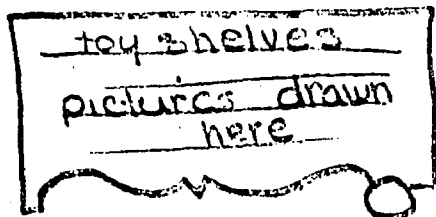 toy shelves
pictures drawn
here